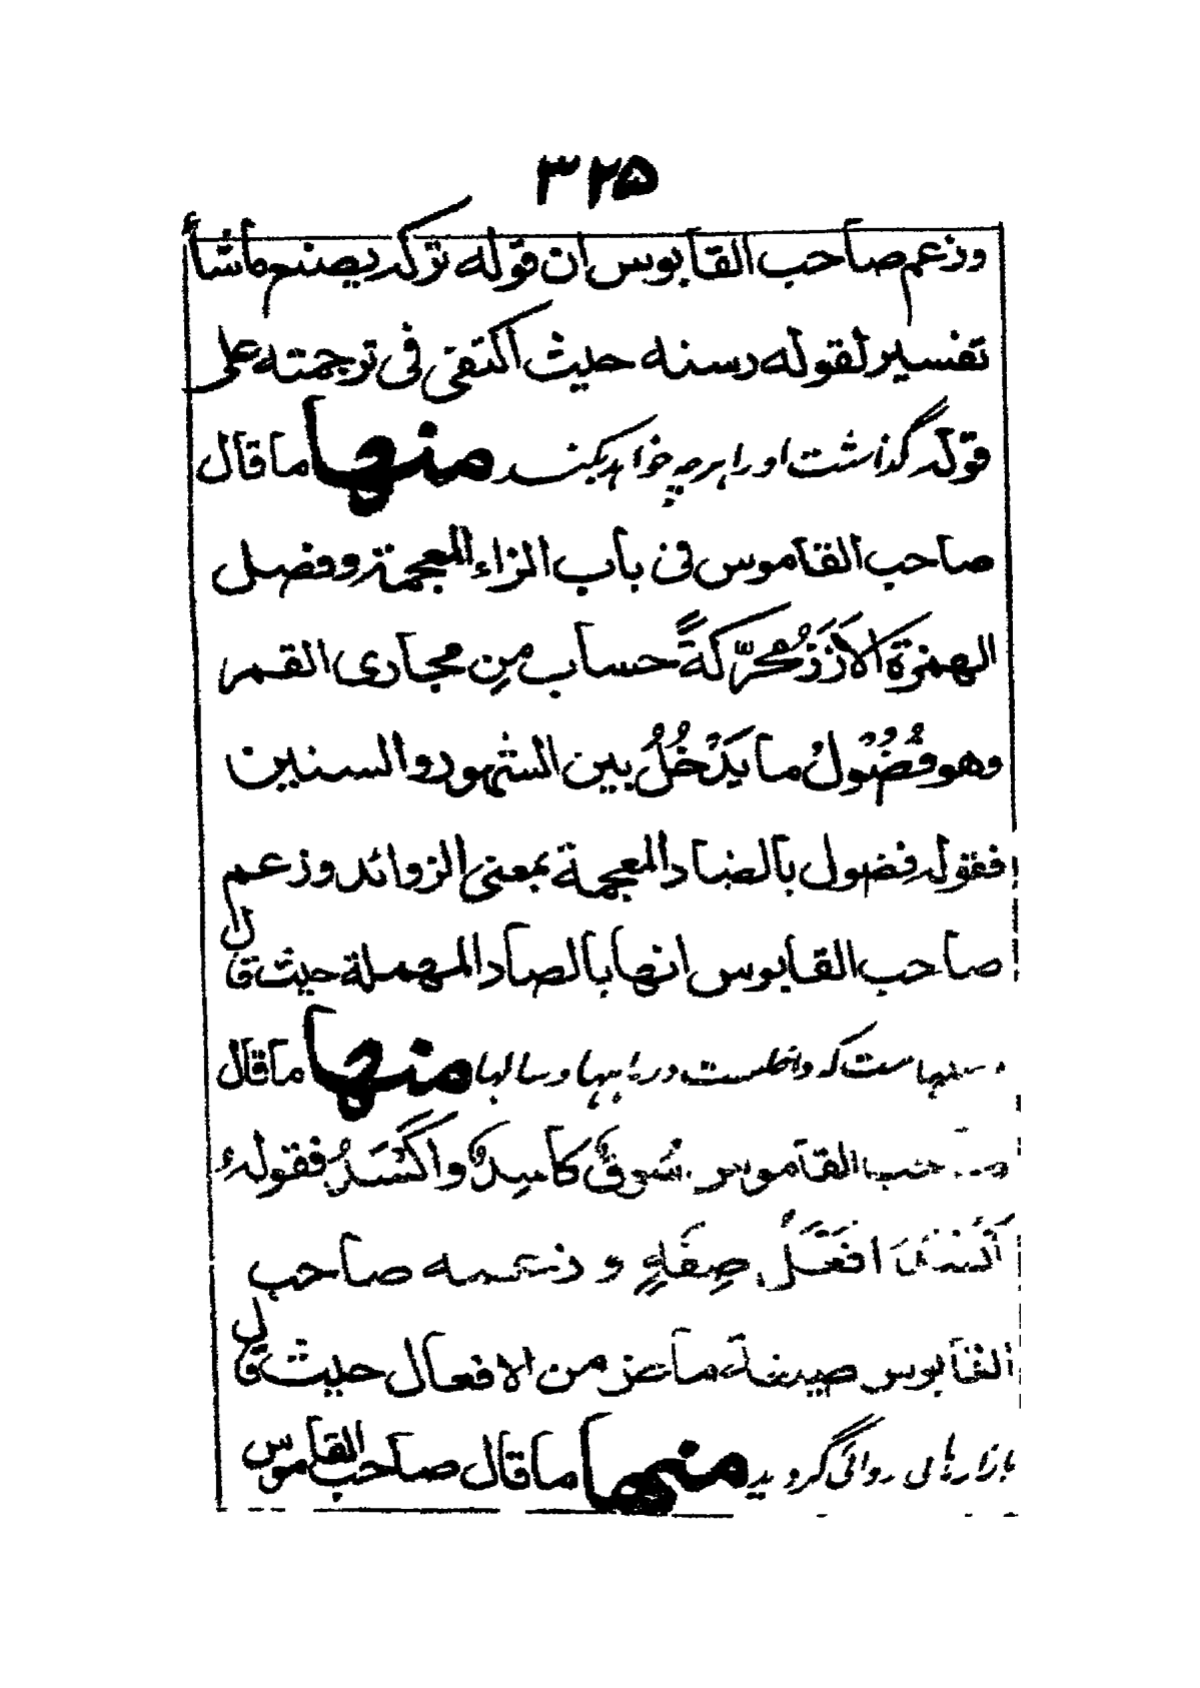 ۳۲۵
وزعم صاحب القابوس ان قوله تركه يصنع ماشأ
تفسير لقوله رسنه حيث اكتفى فى ترجمته على
قوله گذاشت اورا هرچه خواهد بكند منها ما قال
صاحب القاموس فى باب الزاء المعجمة وفصل
الهمزة الاَزَزُ محرّكةً حساب مِن مجارى القمر
وهو فُضُوْلُ ما يَدْخُلُ بين الشهور والسنين
فقوله فضول بالضاد المعجمة بمعنى الزوائد وزعم
صاحب القابوس انها بالصاد المهملة حيث قال
كه داخلست در ماهها وسالها منها ما قال
صاحب القاموس سُوقٌ كاسِدٌ واَكْسَدُ فقوله
اَكْسَدُ افْعَلُ صِفَةٍ وزعمه صاحب
القابوس صيغة ماض من الافعال حيث قال
بازارها بى روائى گرديد منها ما قال صاحب القاموس